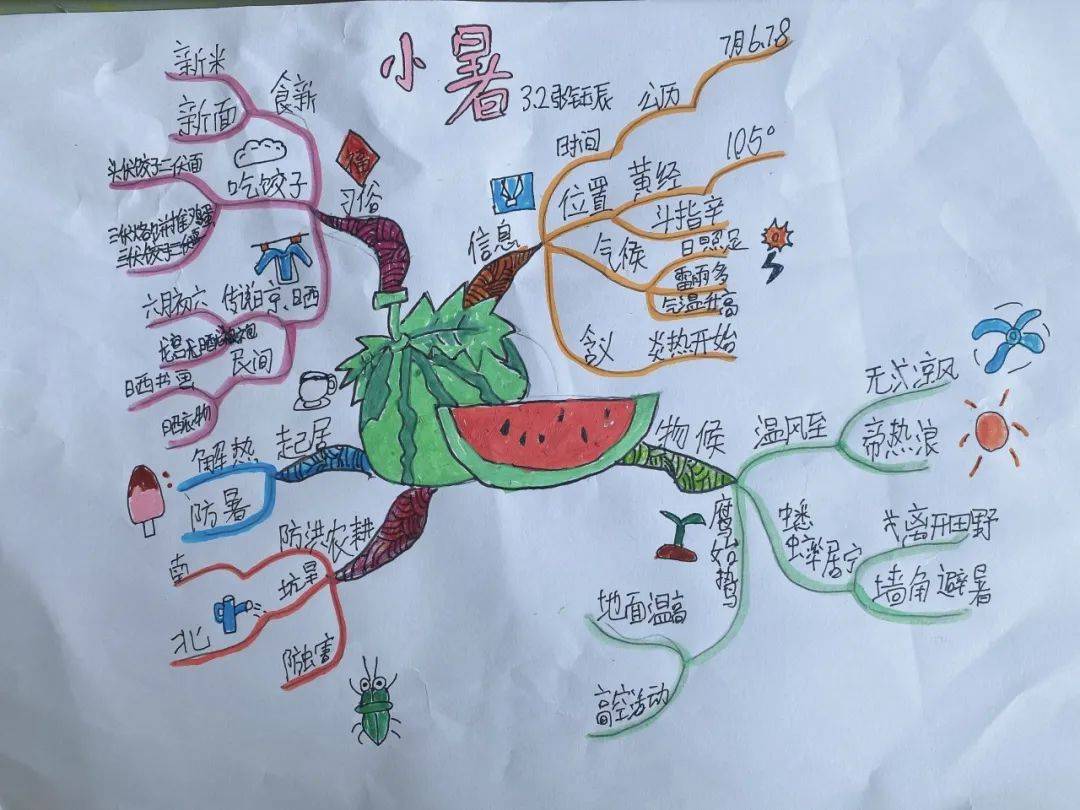 小暑
3.2
新米
食新
新面
头伏饺子二伏面
吃饺子
习俗
六月初六
传说
晒
民间
日晒书画
晒衣物
信息
时间
公历
7月6.7.8
位置
黄经
105°
斗指辛
气候
日照足
雷雨多
气温升高
含义
炎热开始
起居
解热
防暑
农耕
防洪
坑旱
南
北
防虫害
物候
温风至
无凉风
带热浪
蟋蟀居宁
离开田野
墙角避暑
鹰始鸷
地面温高
高空活动